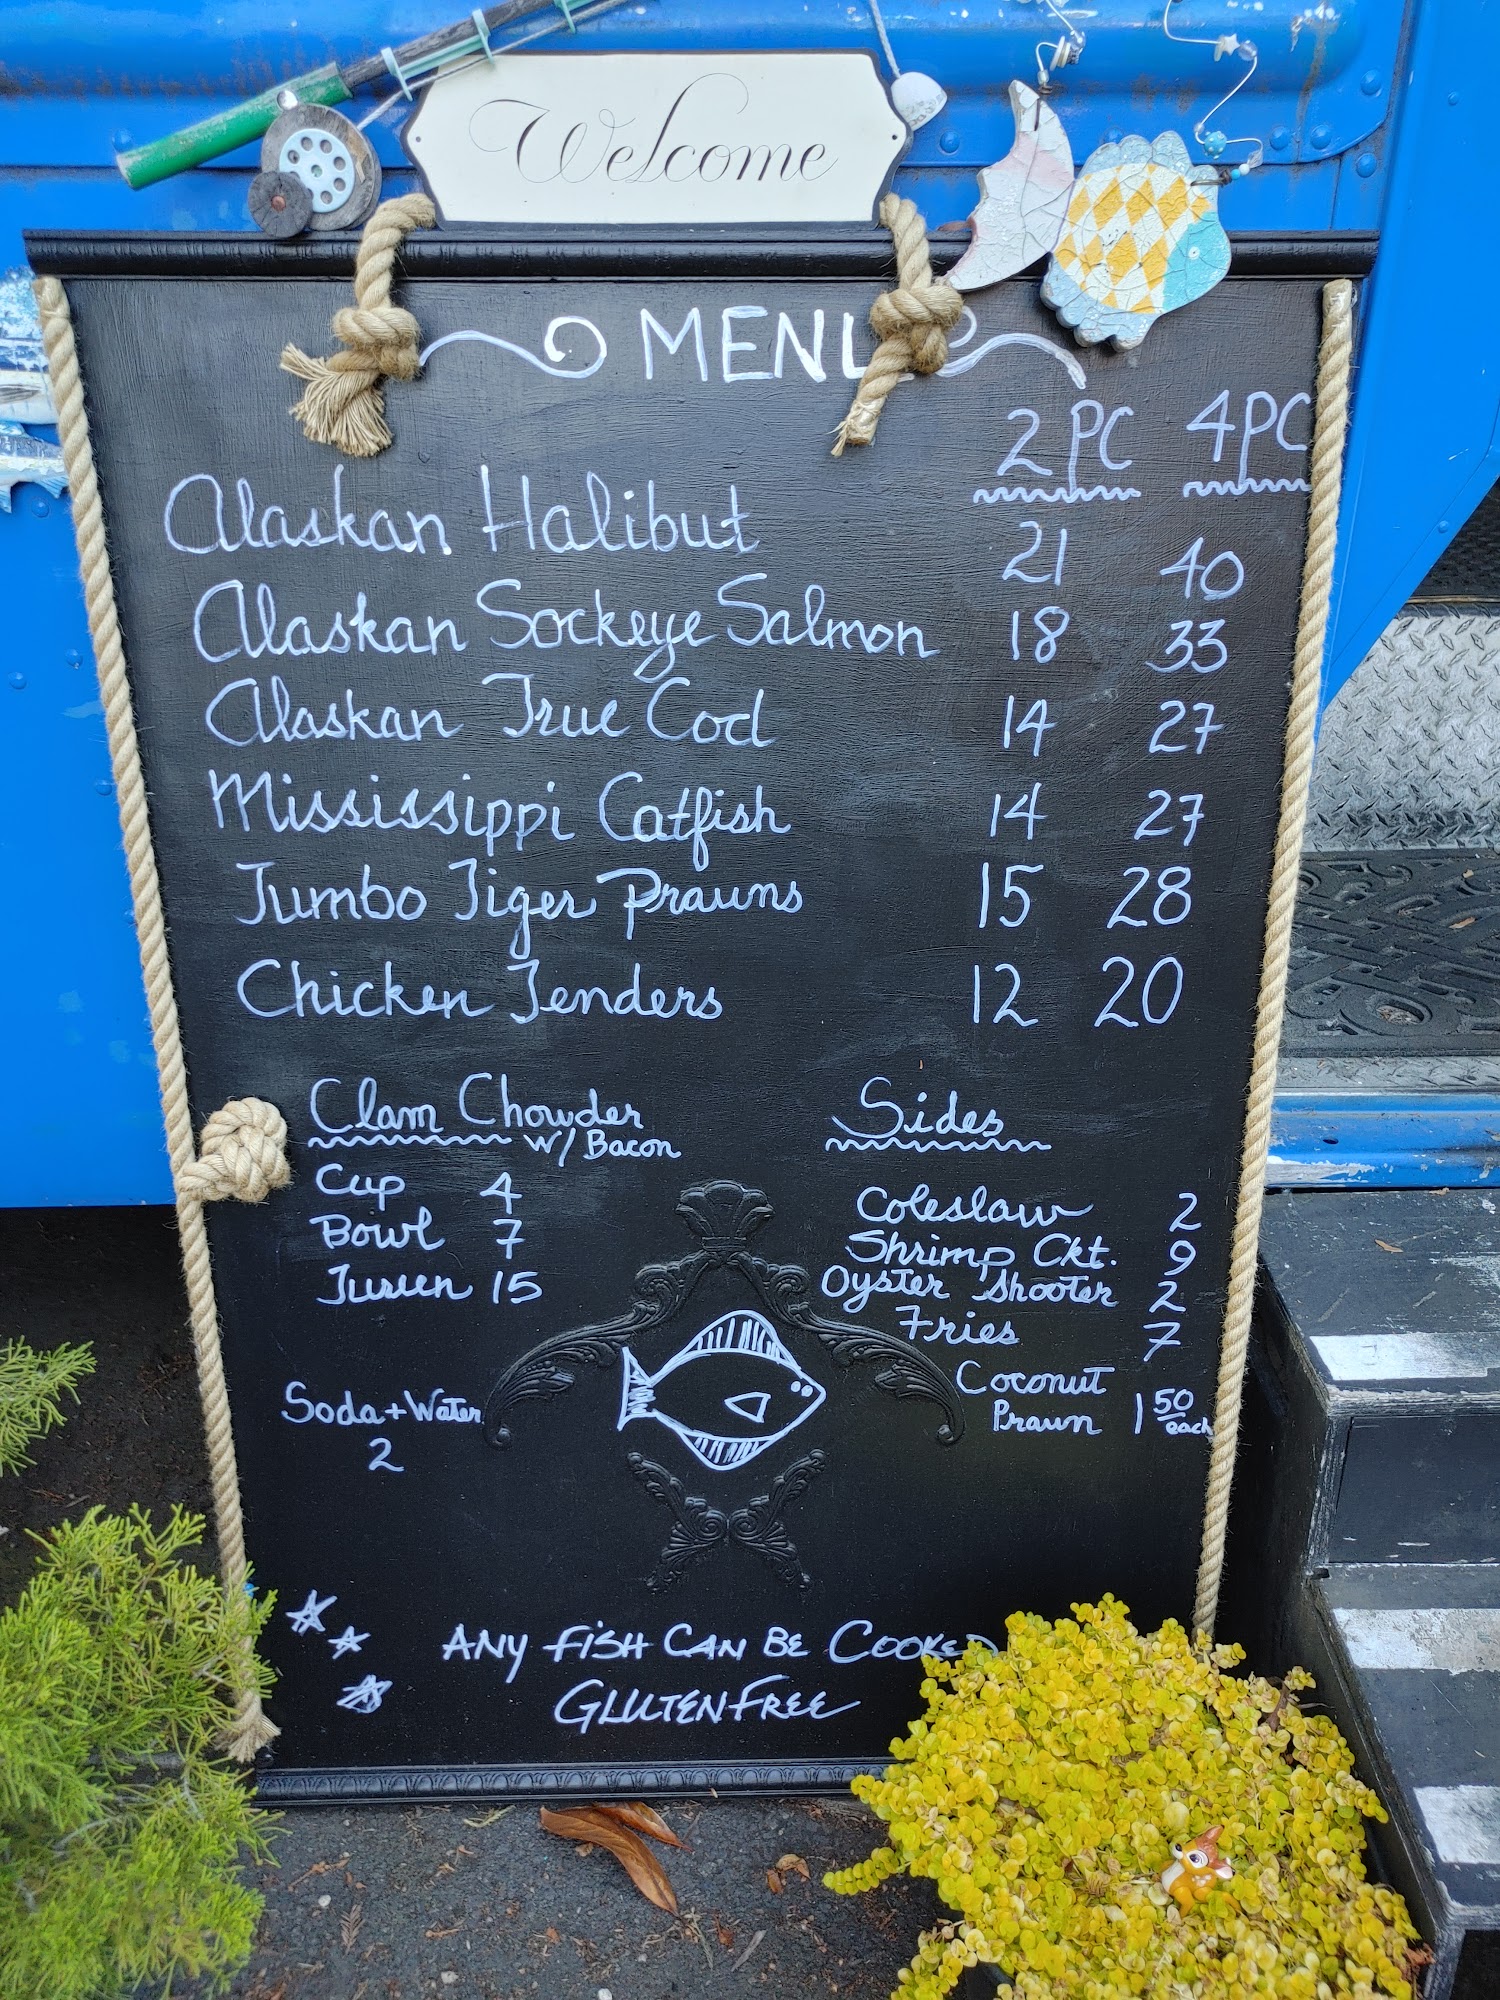 Welcome
MENU
2 PC 4 PC
Alaskan Halibut 21 40
Alaskan Sockeye Salmon 18 33
Alaskan True Cod 14 27
Mississippi Catfish 14 27
Jumbo Tiger Prawns 15 28
Chicken Tenders 12 20
Clam Chowder
w/ Bacon
Cup 4
Bowl 7
Tureen 15
Soda + Water
2
Sides
Coleslaw 2
Shrimp Ckt. 9
Oyster Shooter 2
Fries 7
Coconut
Prawn 1 50 each
ANY FISH CAN BE COOKED
GLUTEN FREE